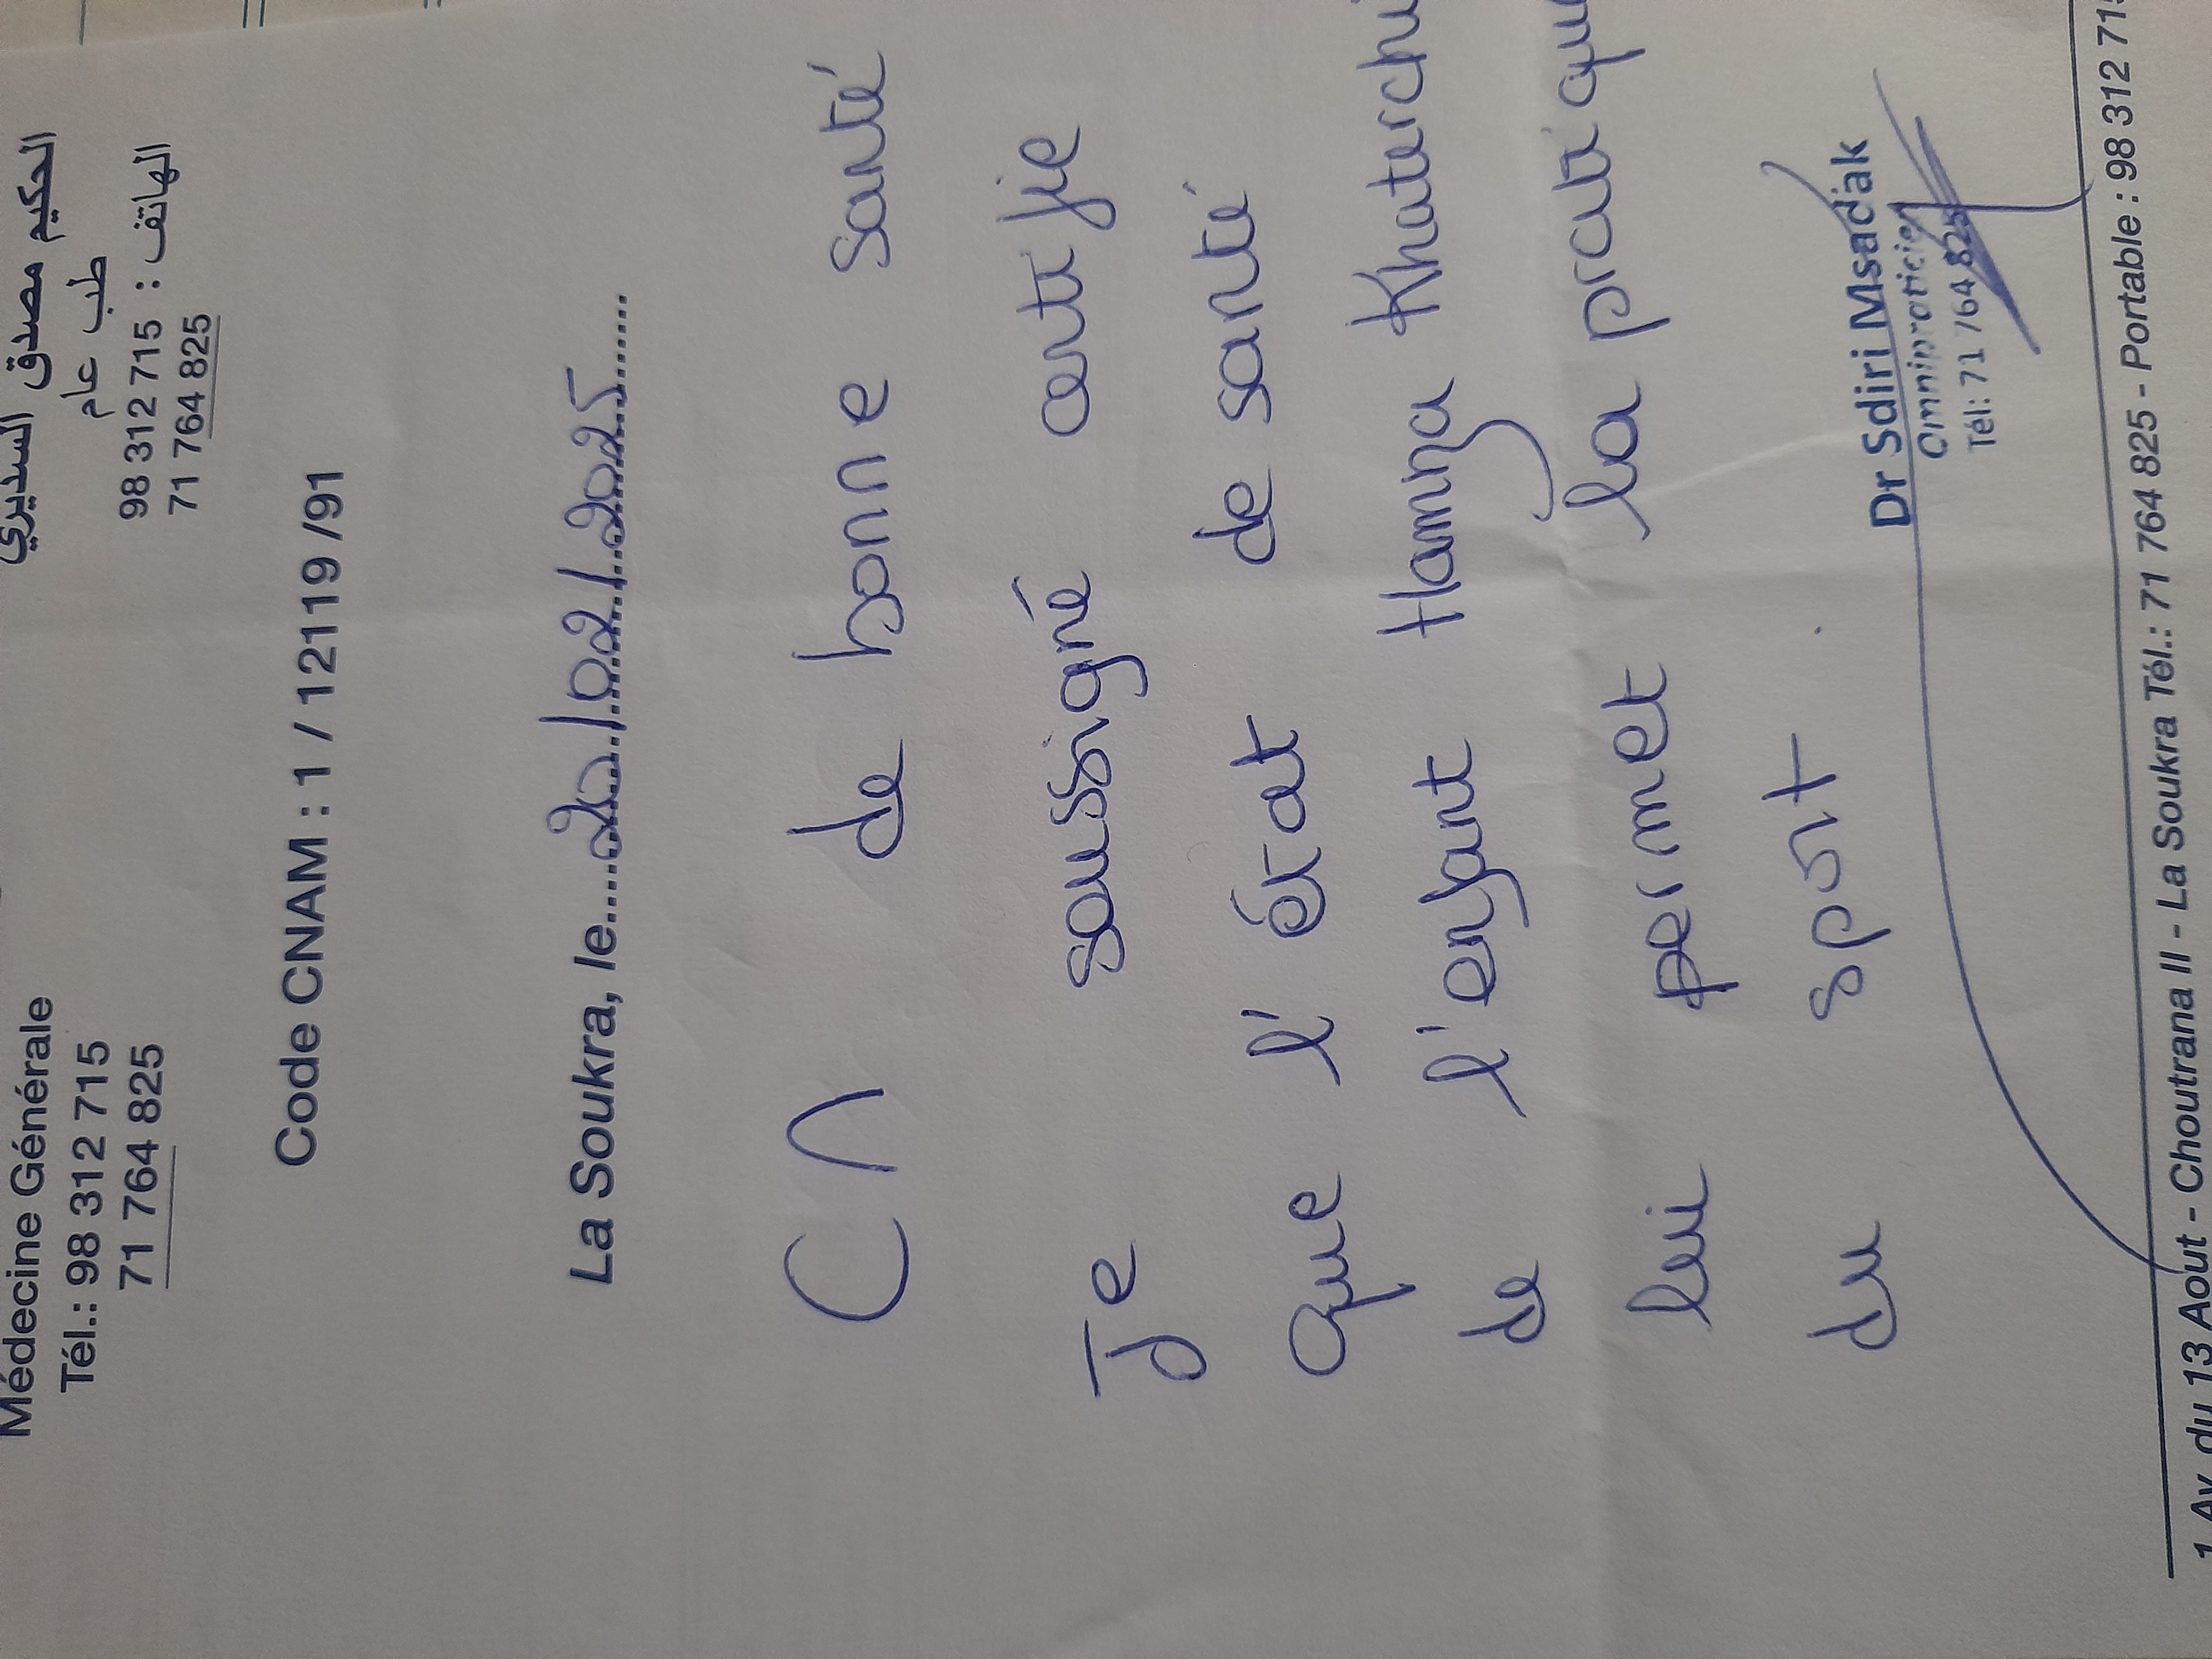 Médecine Générale
Tél.: 98 312 715
71 764 825
الحكيم مصدق السديري
طب عام
الهاتف : 715 312 98
71 764 825
Code CNAM : 1 / 12119 /91
La Soukra, le....20./02./.2025......
CM de bonne santé
Je soussigné certifie
que l'état de santé
de l'enfant Hamza Khaterchi
lui permet la pratique
du sport
Dr Sdiri Msadak
Omnipraticien
Tél: 71 764 825
1 Av. du 13 Aout - Choutrana II - La Soukra Tél.: 71 764 825 - Portable : 98 312 715